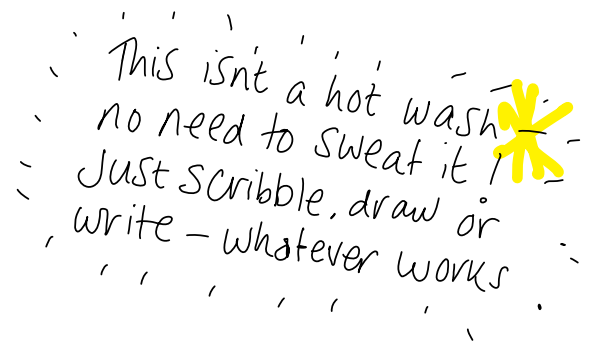 This isnt a hot wash -
no need to sweat it !
Just scribble, draw or
write - whatever works